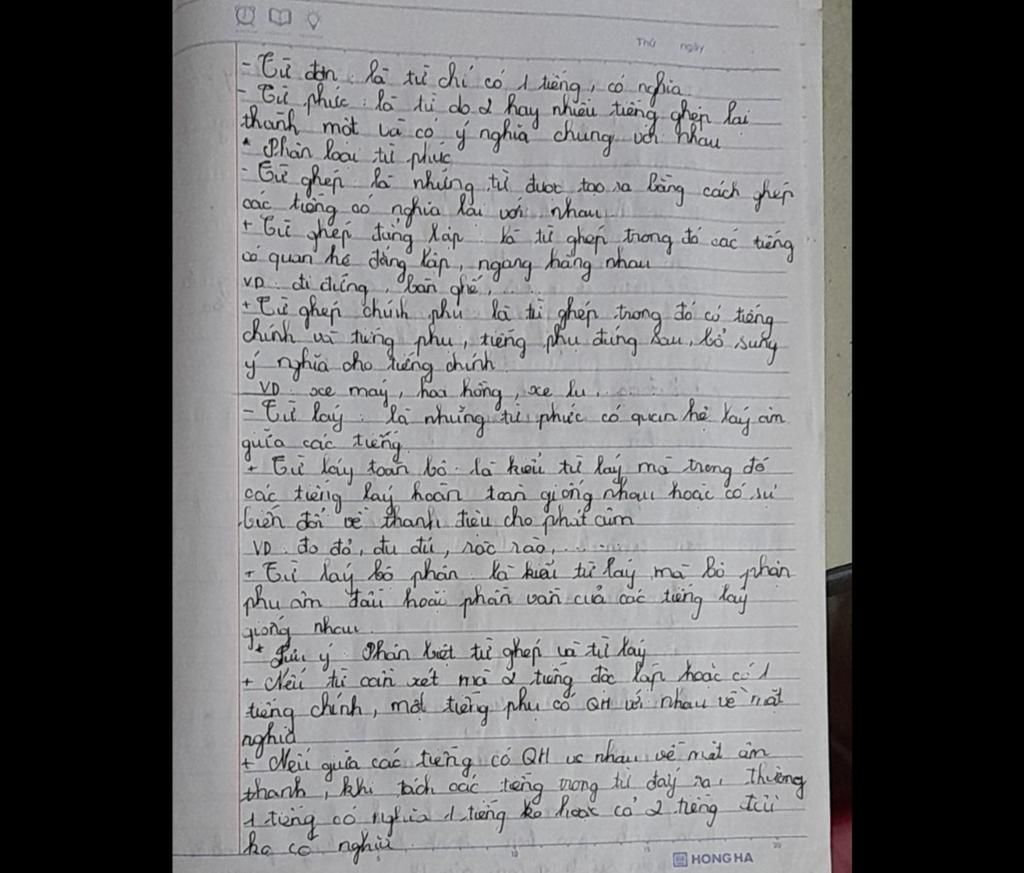 Thứ ngày
- Từ đơn : là từ chỉ có 1 tiếng, có nghĩa
- Từ phức : là từ do 2 hay nhiều tiếng ghép lại
thành một và có ý nghĩa chung với nhau
* Phân loại từ phức
- Từ ghép : là những từ được tạo ra bằng cách ghép
các tiếng có nghĩa lại với nhau.
+ Từ ghép đẳng lập : là từ ghép trong đó các tiếng
có quan hệ đẳng lập, ngang hàng nhau
VD : đi đứng, bàn ghế, ......
+ Từ ghép chính phụ : là từ ghép trong đó có tiếng
chính và tiếng phụ, tiếng phụ đứng sau, bổ sung
ý nghĩa cho tiếng chính.
VD : xe máy, hoa hồng, xe lu, ......
- Từ láy : là những từ phức có quan hệ láy âm
giữa các tiếng
+ Từ láy toàn bộ : là kiểu từ láy mà trong đó
các tiếng láy hoàn toàn giống nhau hoặc có sự
biến đổi về thanh điệu cho phát âm
VD : đo đỏ, đu đủ, rào rào, ......
+ Từ láy bộ phận : là kiểu từ láy mà bộ phận
phụ âm đầu hoặc phần vần của các tiếng láy
giống nhau.
* Lưu ý : Phân biệt từ ghép và từ láy
+ Nếu từ cần xét mà 2 tiếng độc lập hoặc có 1
tiếng chính, một tiếng phụ có QH với nhau về mặt
nghĩa
+ Nếu giữa các tiếng có QH vs nhau về mặt âm
thanh, khi tách các tiếng trong từ láy ra, thường
1 tiếng có nghĩa 1 tiếng ko hoặc cả 2 tiếng đều
ko có nghĩa.
5 10 15 20
HONG HA